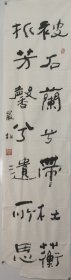 被石蘭兮帶杜衡
折芳馨兮遺所思